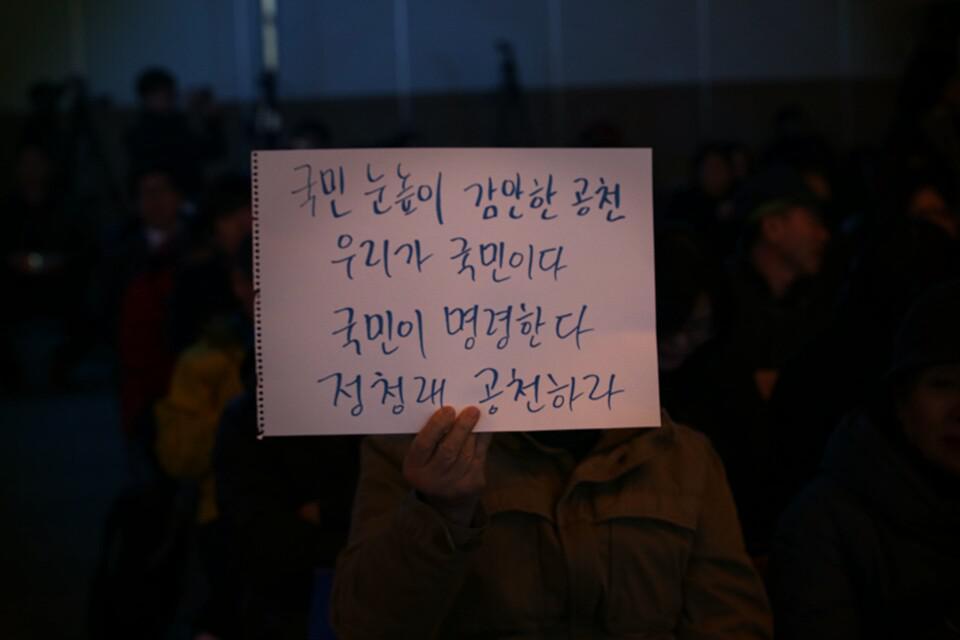 국민 눈높이 감안한 공천
우리가 국민이다
국민이 명령한다
정청래 공천하라